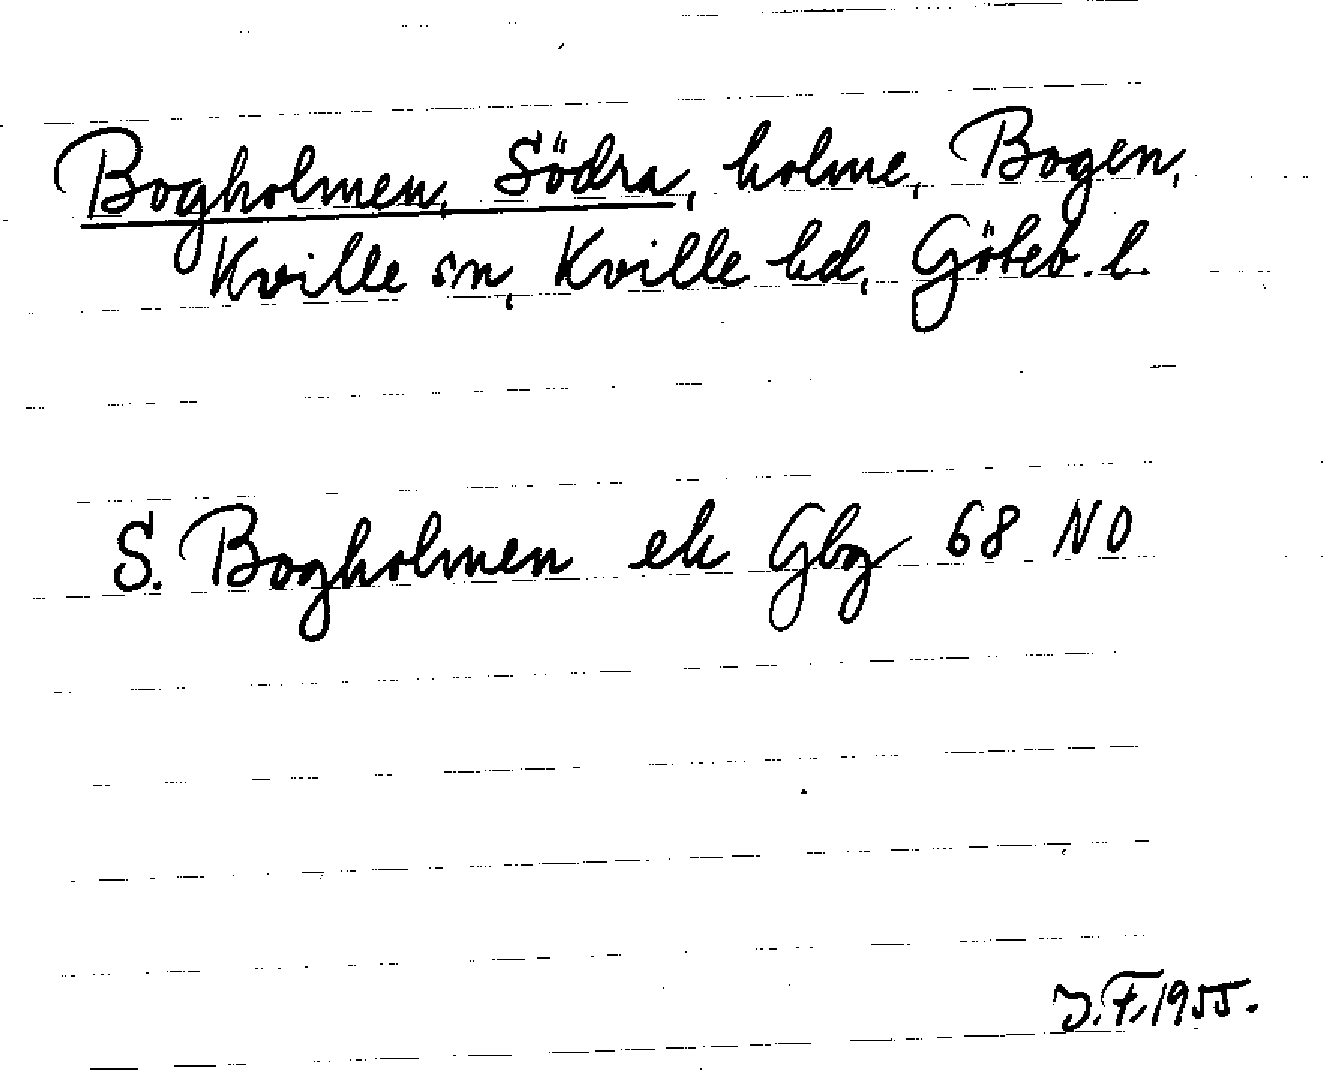 Bogholmen, Södra, holme, Bogen,
Kville sn, Kville hd, Göteb. l.
S. Bogholmen ek Gbg 68 NO
J.F. 1955.